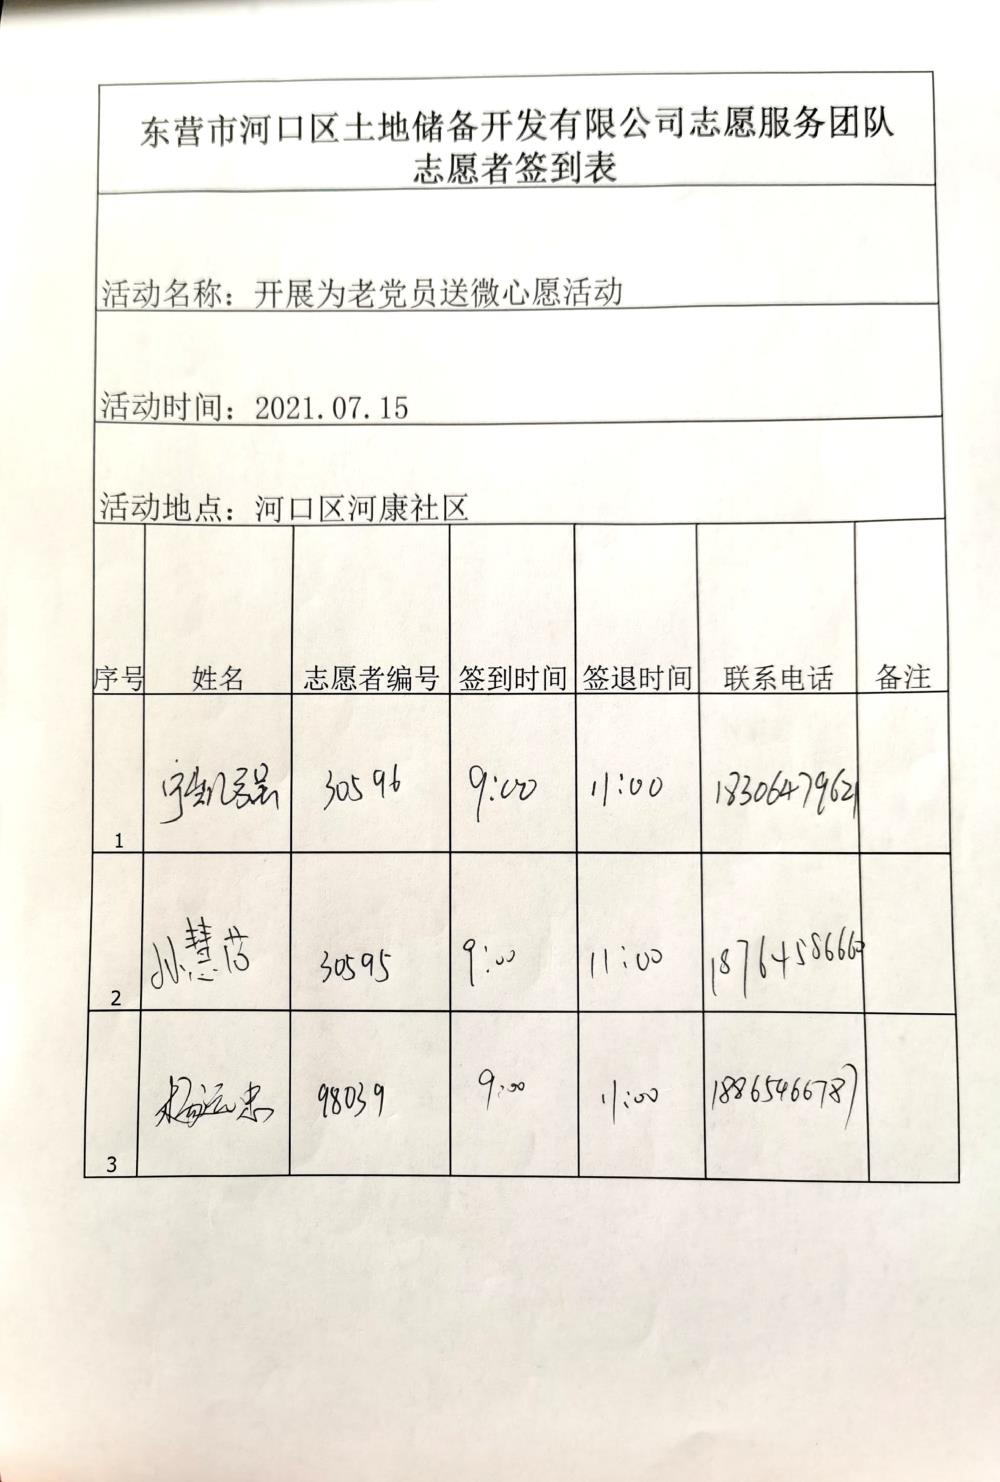 东营市河口区土地储备开发有限公司志愿服务团队
志愿者签到表
活动名称：开展为老党员送微心愿活动
活动时间：2021.07.15
活动地点：河口区河康社区
序号 姓名 志愿者编号 签到时间 签退时间 联系电话 备注
1 30596 9:00 11:00 18306479621
2 孙慧芳 30595 9:00 11:00 18764586660
3 杨运忠 98039 9:00 11:00 18865466787